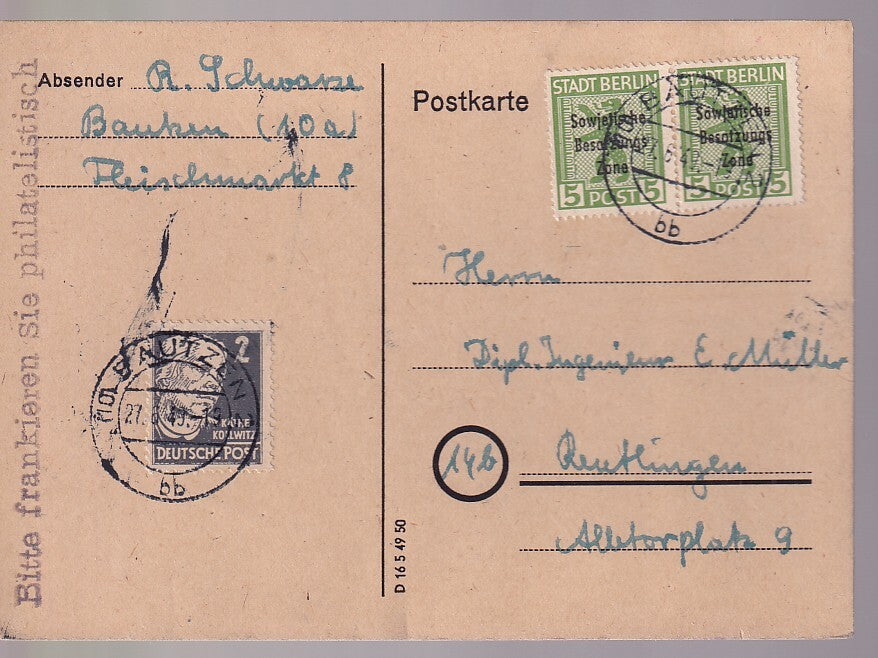 Bitte frankiaren Sie philatelistisch
Absender R. Schwarze
Bautzen (10a)
Fleischmarkt 8
Postkarte
STADT BERLIN
Sowjetische
Besatzungs
Zone
5 POST 5
STADT BERLIN
Sowjetische
Besatzungs
Zone
5 POST 5
BAUTZEN
bb
Herrn
Dipl. Ingenieur E. Müller
14b
Reutlingen
Albtorplatz 9
2
KÄTHE
KOLLWITZ
DEUTSCHE POST
BAUTZEN
bb
D 16 5 49 50